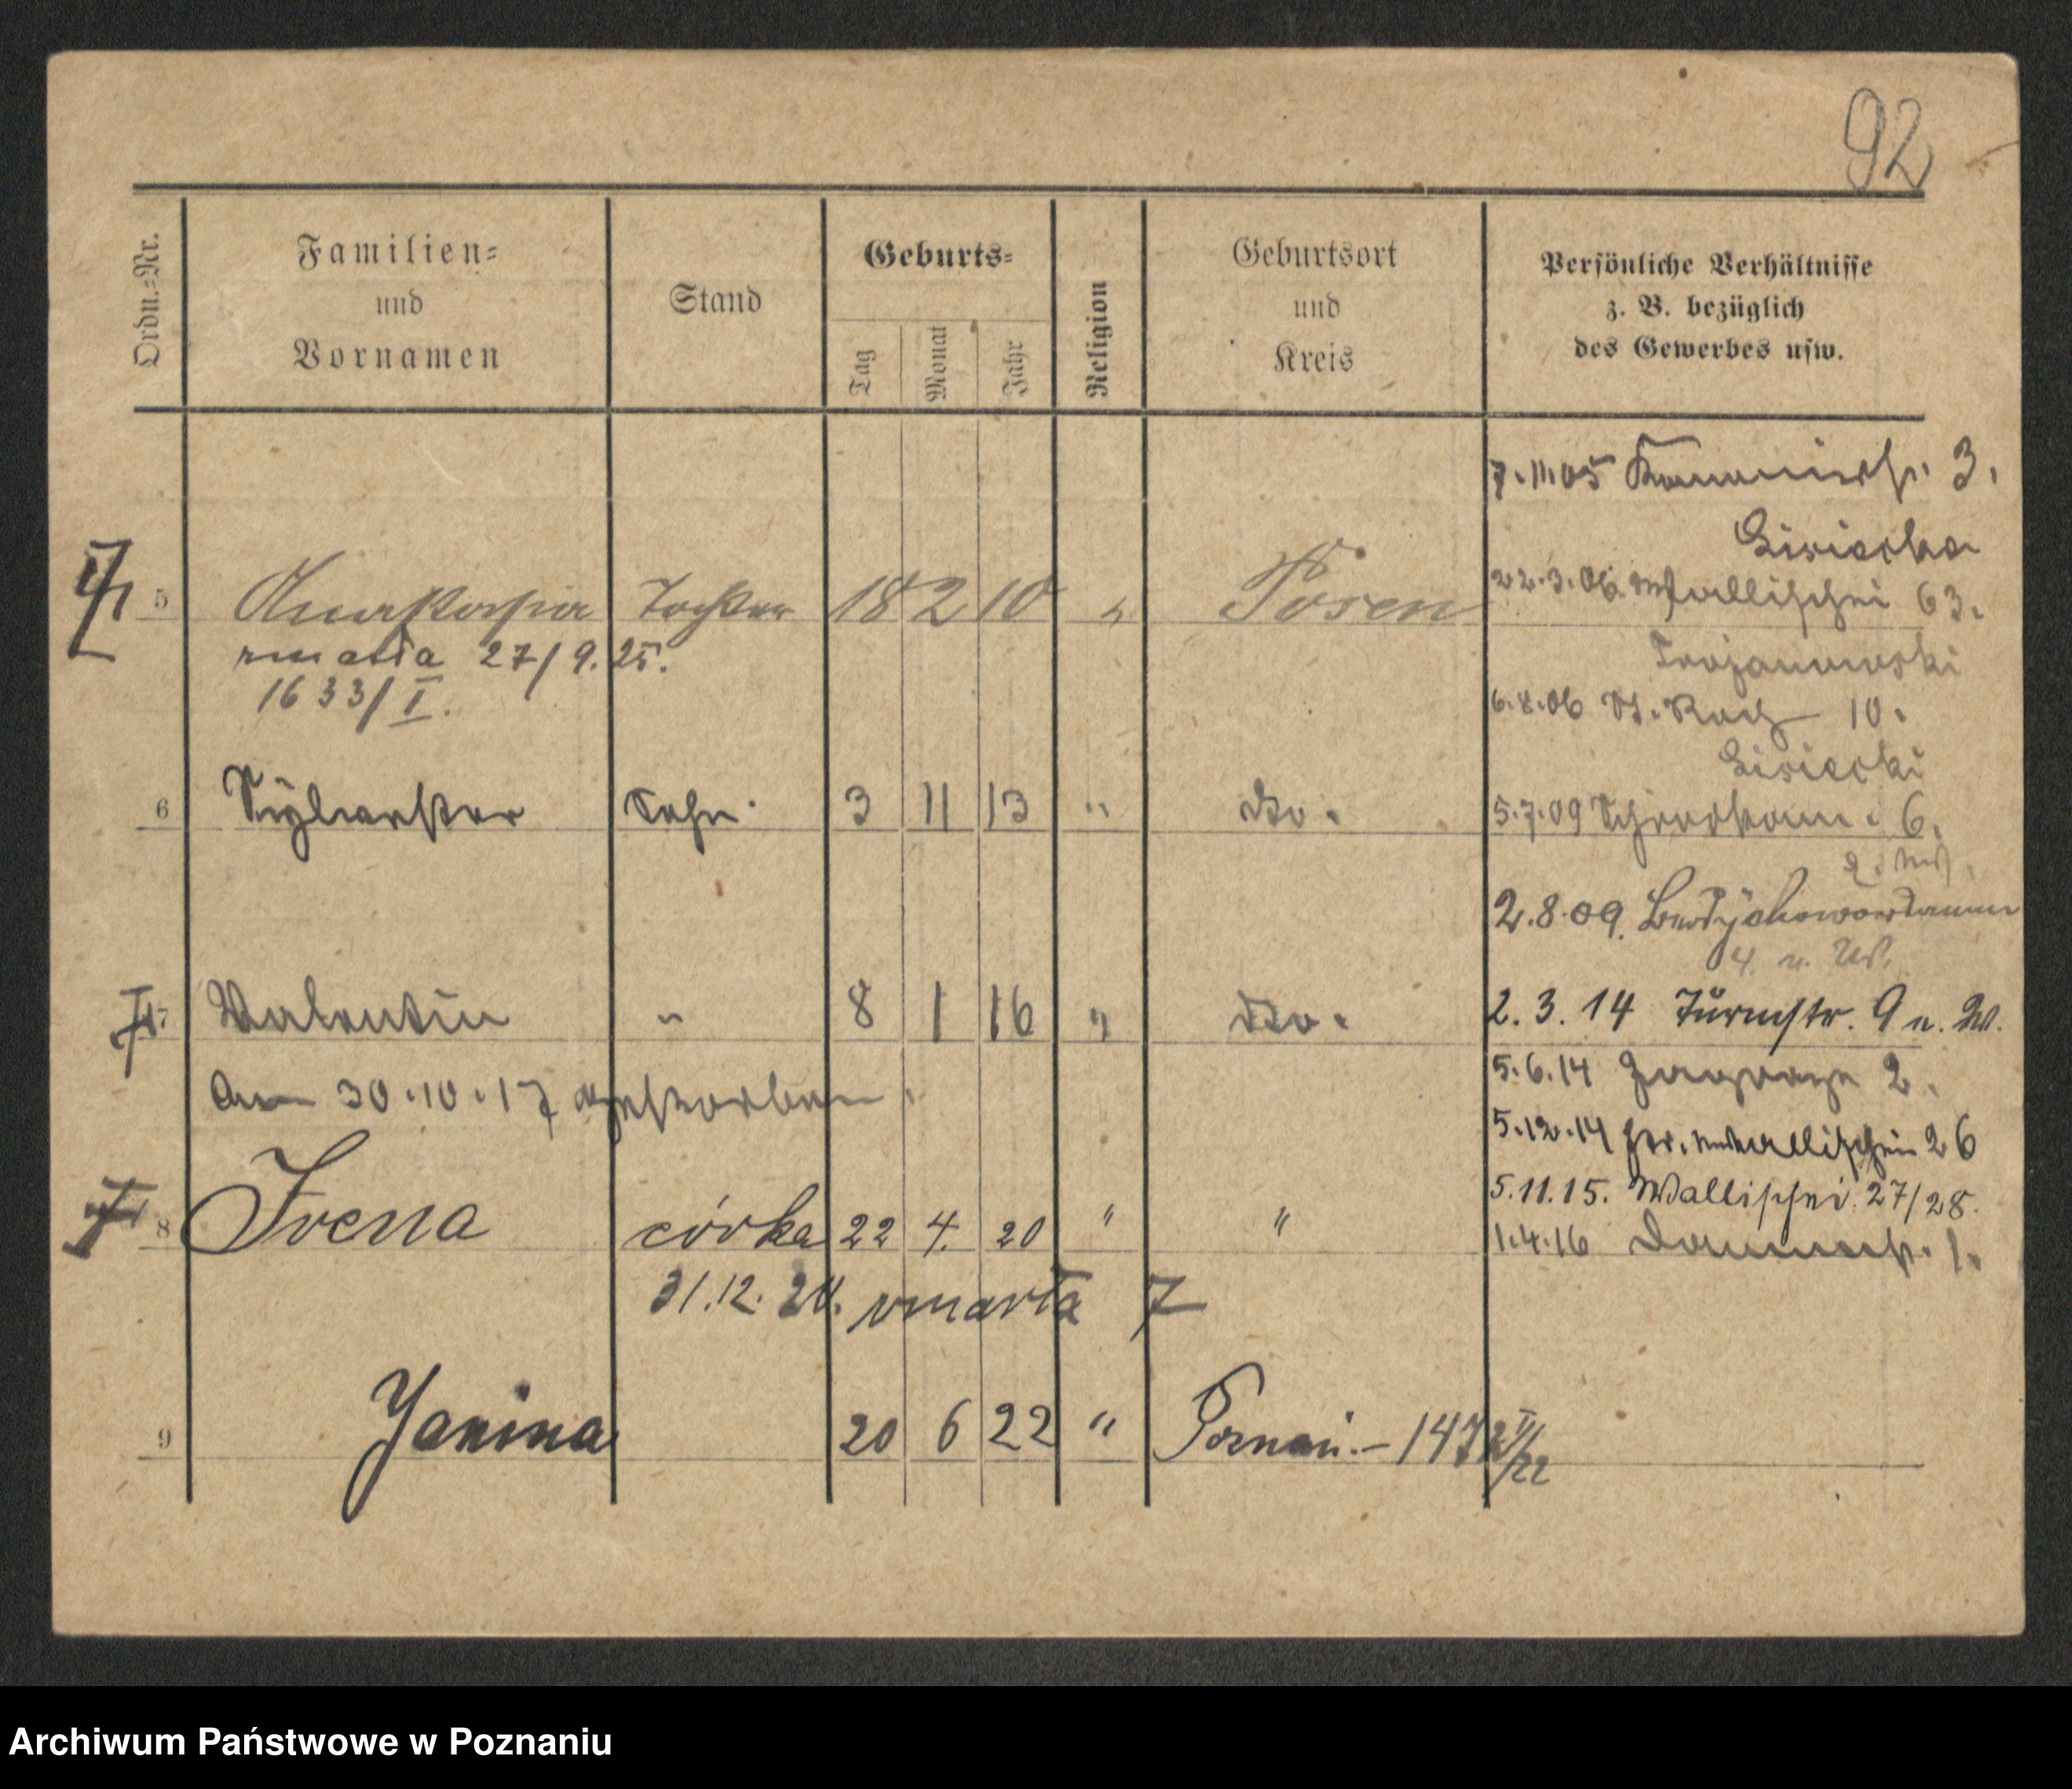 92
Ordn.-Nr.
Familien-
und
Vornamen
Stand
Geburts-
Tag
Monat
Jahr
Religion
Geburtsort
und
Kreis
Persönliche Verhältnisse
z. B. bezüglich
des Gewerbes usw.
7.11.05 3.
Lisiecka
5 Anastasia Tochter 18 2 10 " Posen
22.3.06 Wallischei 63.
zmarła 27/9.25.
Trojanowski
1633/I.
6.8.06 St. Roch 10.
Lisiecki
6 Sylvester Sohn 3 11 13 " do.
5.7.09 6.
2.8.09. Berdychowoerdamm
4. n. W.
7 Valentin " 8 1 16 " do.
2. 3. 14 Turmstr. 9 n. W.
5.6.14 Zagorze 2.
Am 30.10.17 gestorben.
5.12.14 Wallischei 26
5.11.15. Wallischei 27/28.
8 Irena córka 22 4. 20 " "
1.4.16 1.
31.12. zmarła
9 Janina 20 6 22 " Poznań.-
Archiwum Państwowe w Poznaniu